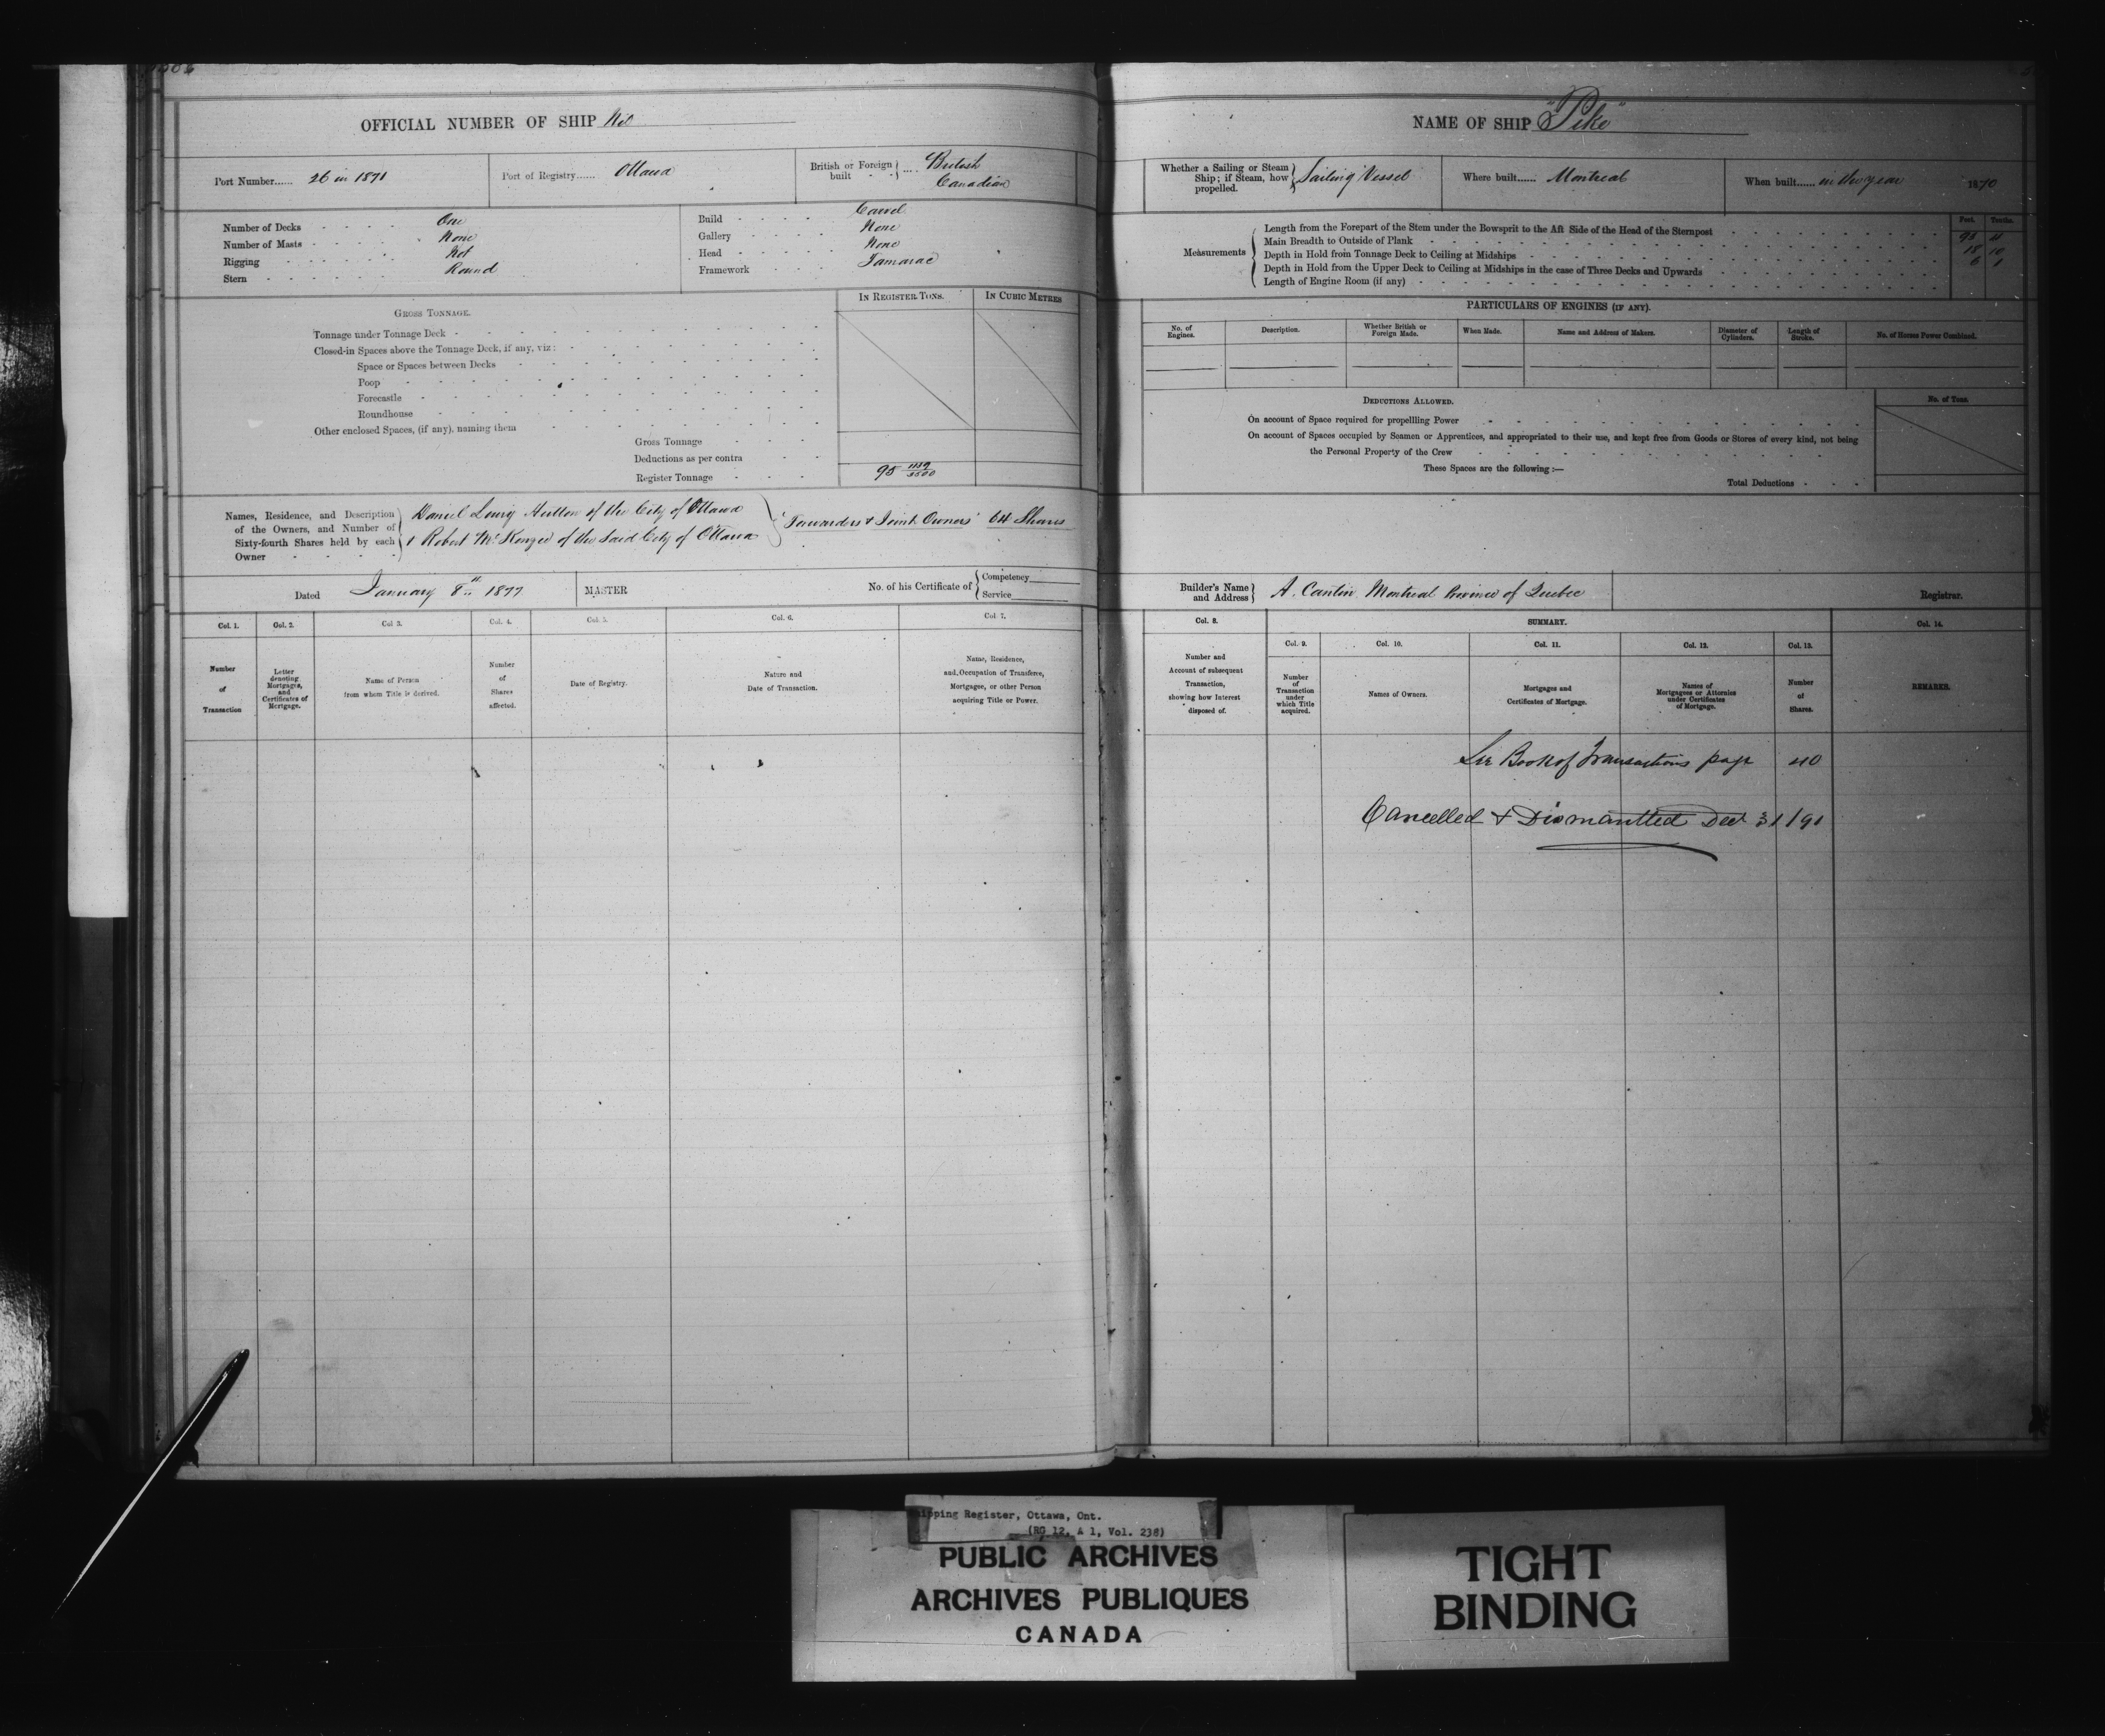 OFFICIAL NUMBER OF SHIP Nil
Port Number...... 26 in 1871
Port of Registry...... Ottawa
British or Foreign built - - .... British Canadian
Number of Decks - - - - One
Number of Masts - - - - None
Rigging - - - - - Not
Stern - - - - - - Round
Build - - - - - Carvel
Gallery - - - - None
Head - - - - - None
Framework - - - - Tamarac
IN REGISTER TONS.
IN CUBIC METRES
GROSS TONNAGE.
Tonnage under Tonnage Deck
Closed-in Spaces above the Tonnage Deck, if any, viz:
Space or Spaces between Decks
Poop
Forecastle
Roundhouse
Other enclosed Spaces, (if any), naming them
Gross Tonnage
Deductions as per contra
Register Tonnage 95
Names, Residence, and Description of the Owners, and Number of Sixty-fourth Shares held by each Owner
Daniel Hutton of the City of Ottawa
& Robert McKenzie of the Said City of Ottawa
Forwarders & Joint Owners 64 Shares
Dated January 8th
MASTER
No. of his Certificate of Competency Service
Col. 1.
Col. 2.
Col 3.
Col. 4.
Col. 5.
Col. 6.
Col. 7.
Number of Transaction
Letter denoting Mortgages, and Certificates of Mortgage.
Name of Person from whom Title is derived.
Number of Shares affected.
Date of Registry.
Nature and Date of Transaction.
Name, Residence, and Occupation of Transferee, Mortgagee, or other Person acquiring Title or Power.
NAME OF SHIP "Pike"
Whether a Sailing or Steam Ship; if Steam, how propelled. Sailing Vessel
Where built...... Montreal
When built...... in the year 1870
Feet. Tenths.
Measurements
Length from the Forepart of the Stem under the Bowsprit to the Aft Side of the Head of the Sternpost
Main Breadth to Outside of Plank 18 10
Depth in Hold from Tonnage Deck to Ceiling at Midships 6 1
Depth in Hold from the Upper Deck to Ceiling at Midships in the case of Three Decks and Upwards
Length of Engine Room (if any)
PARTICULARS OF ENGINES (IF ANY).
No. of Engines.
Description.
Whether British or Foreign Made.
When Made.
Name and Address of Makers.
Diameter of Cylinders.
Length of Stroke.
No. of Horses Power Combined.
DEDUCTIONS ALLOWED.
No. of Tons.
On account of Space required for propellling Power
On account of Spaces occupied by Seamen or Apprentices, and appropriated to their use, and kept free from Goods or Stores of every kind, not being
the Personal Property of the Crew
These Spaces are the following:—
Total Deductions
Builder's Name and Address A. Cantin Montreal Province of Quebec
Registrar.
Col. 8.
SUMMARY.
Col. 14.
Col. 9.
Col. 10.
Col. 11.
Col. 12.
Col. 13.
Number and Account of subsequent Transaction, showing how Interest disposed of.
Number of Transaction under which Title acquired.
Names of Owners.
Mortgages and Certificates of Mortgage.
Names of Mortgagees or Attornies under Certificates of Mortgage.
Number of Shares.
REMARKS.
See Book of Transactions page 40
Cancelled & Dismantled Dec 31/91
Shipping Register, Ottawa, Ont.
(RG 12, A 1, Vol. 238)
PUBLIC ARCHIVES
ARCHIVES PUBLIQUES
CANADA
TIGHT
BINDING